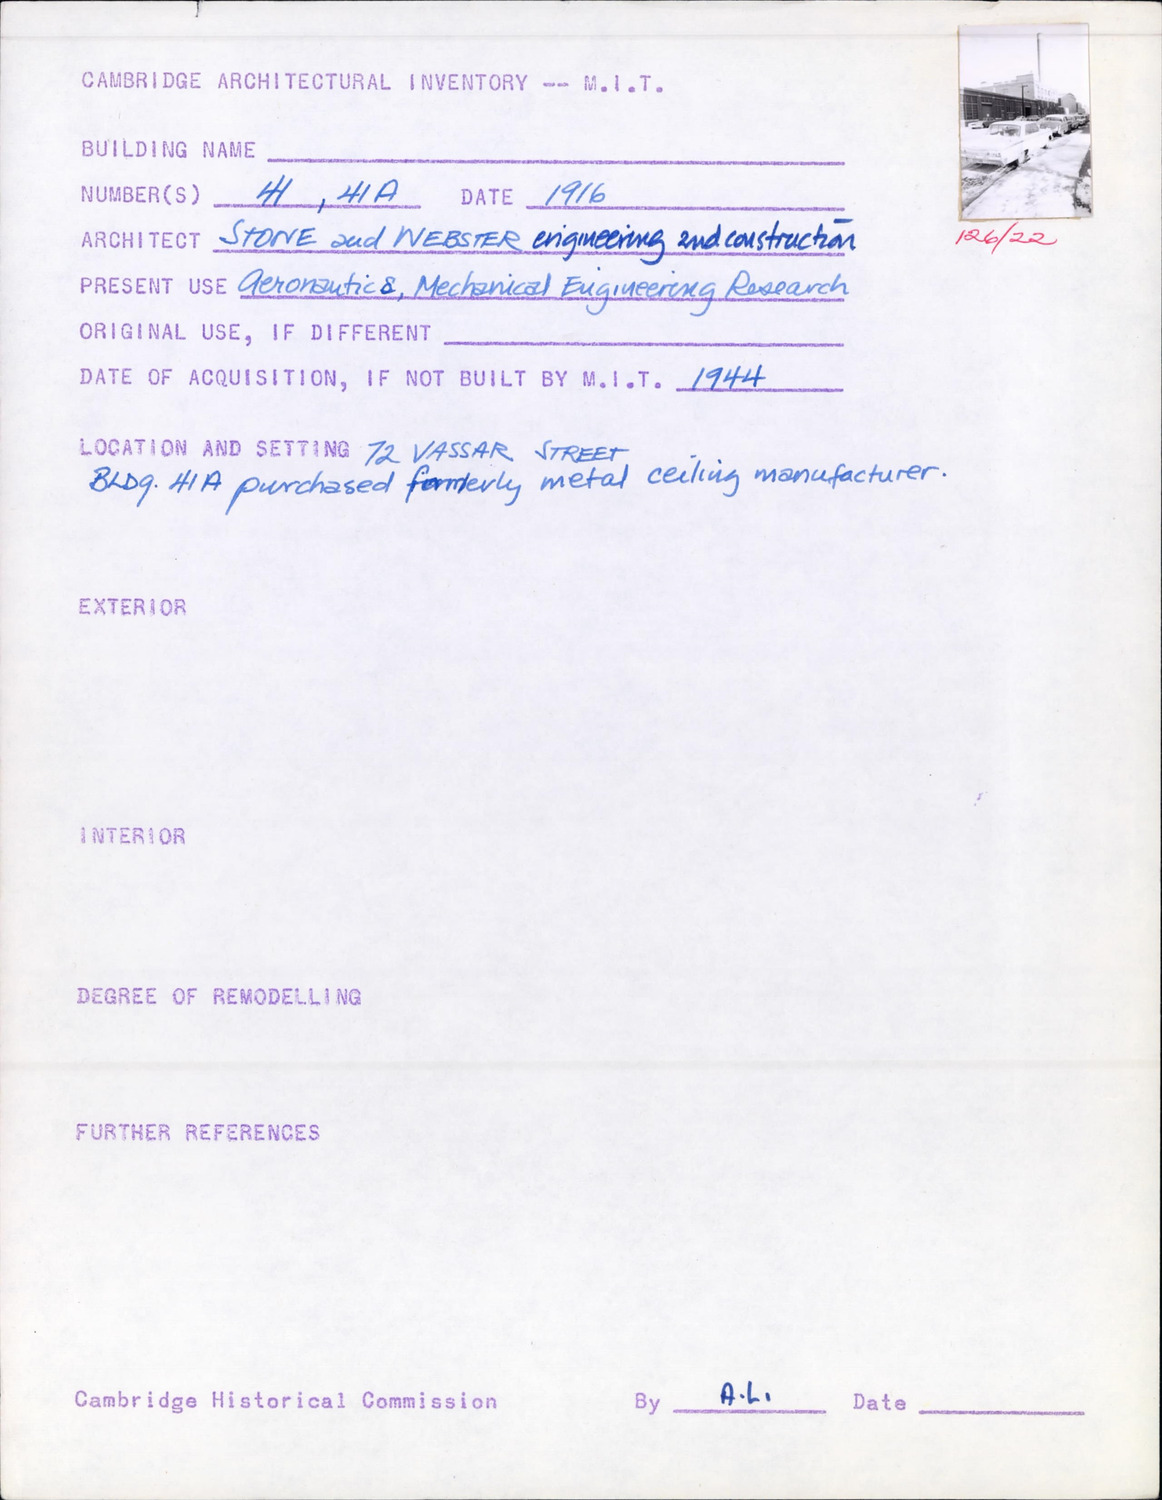 CAMBRIDGE ARCHITECTURAL INVENTORY -- M.I.T.
BUILDING NAME
NUMBER(S) 41, 41A DATE 1916
ARCHITECT STONE and WEBSTER engineering and construction
PRESENT USE Aeronautics, Mechanical Engineering Research
ORIGINAL USE, IF DIFFERENT
DATE OF ACQUISITION, IF NOT BUILT BY M.I.T. 1944
126/22
LOCATION AND SETTING 72 VASSAR STREET
BLDg. 41A purchased formerly metal ceiling manufacturer.
EXTERIOR
INTERIOR
DEGREE OF REMODELLING
FURTHER REFERENCES
Cambridge Historical Commission By A.L. Date